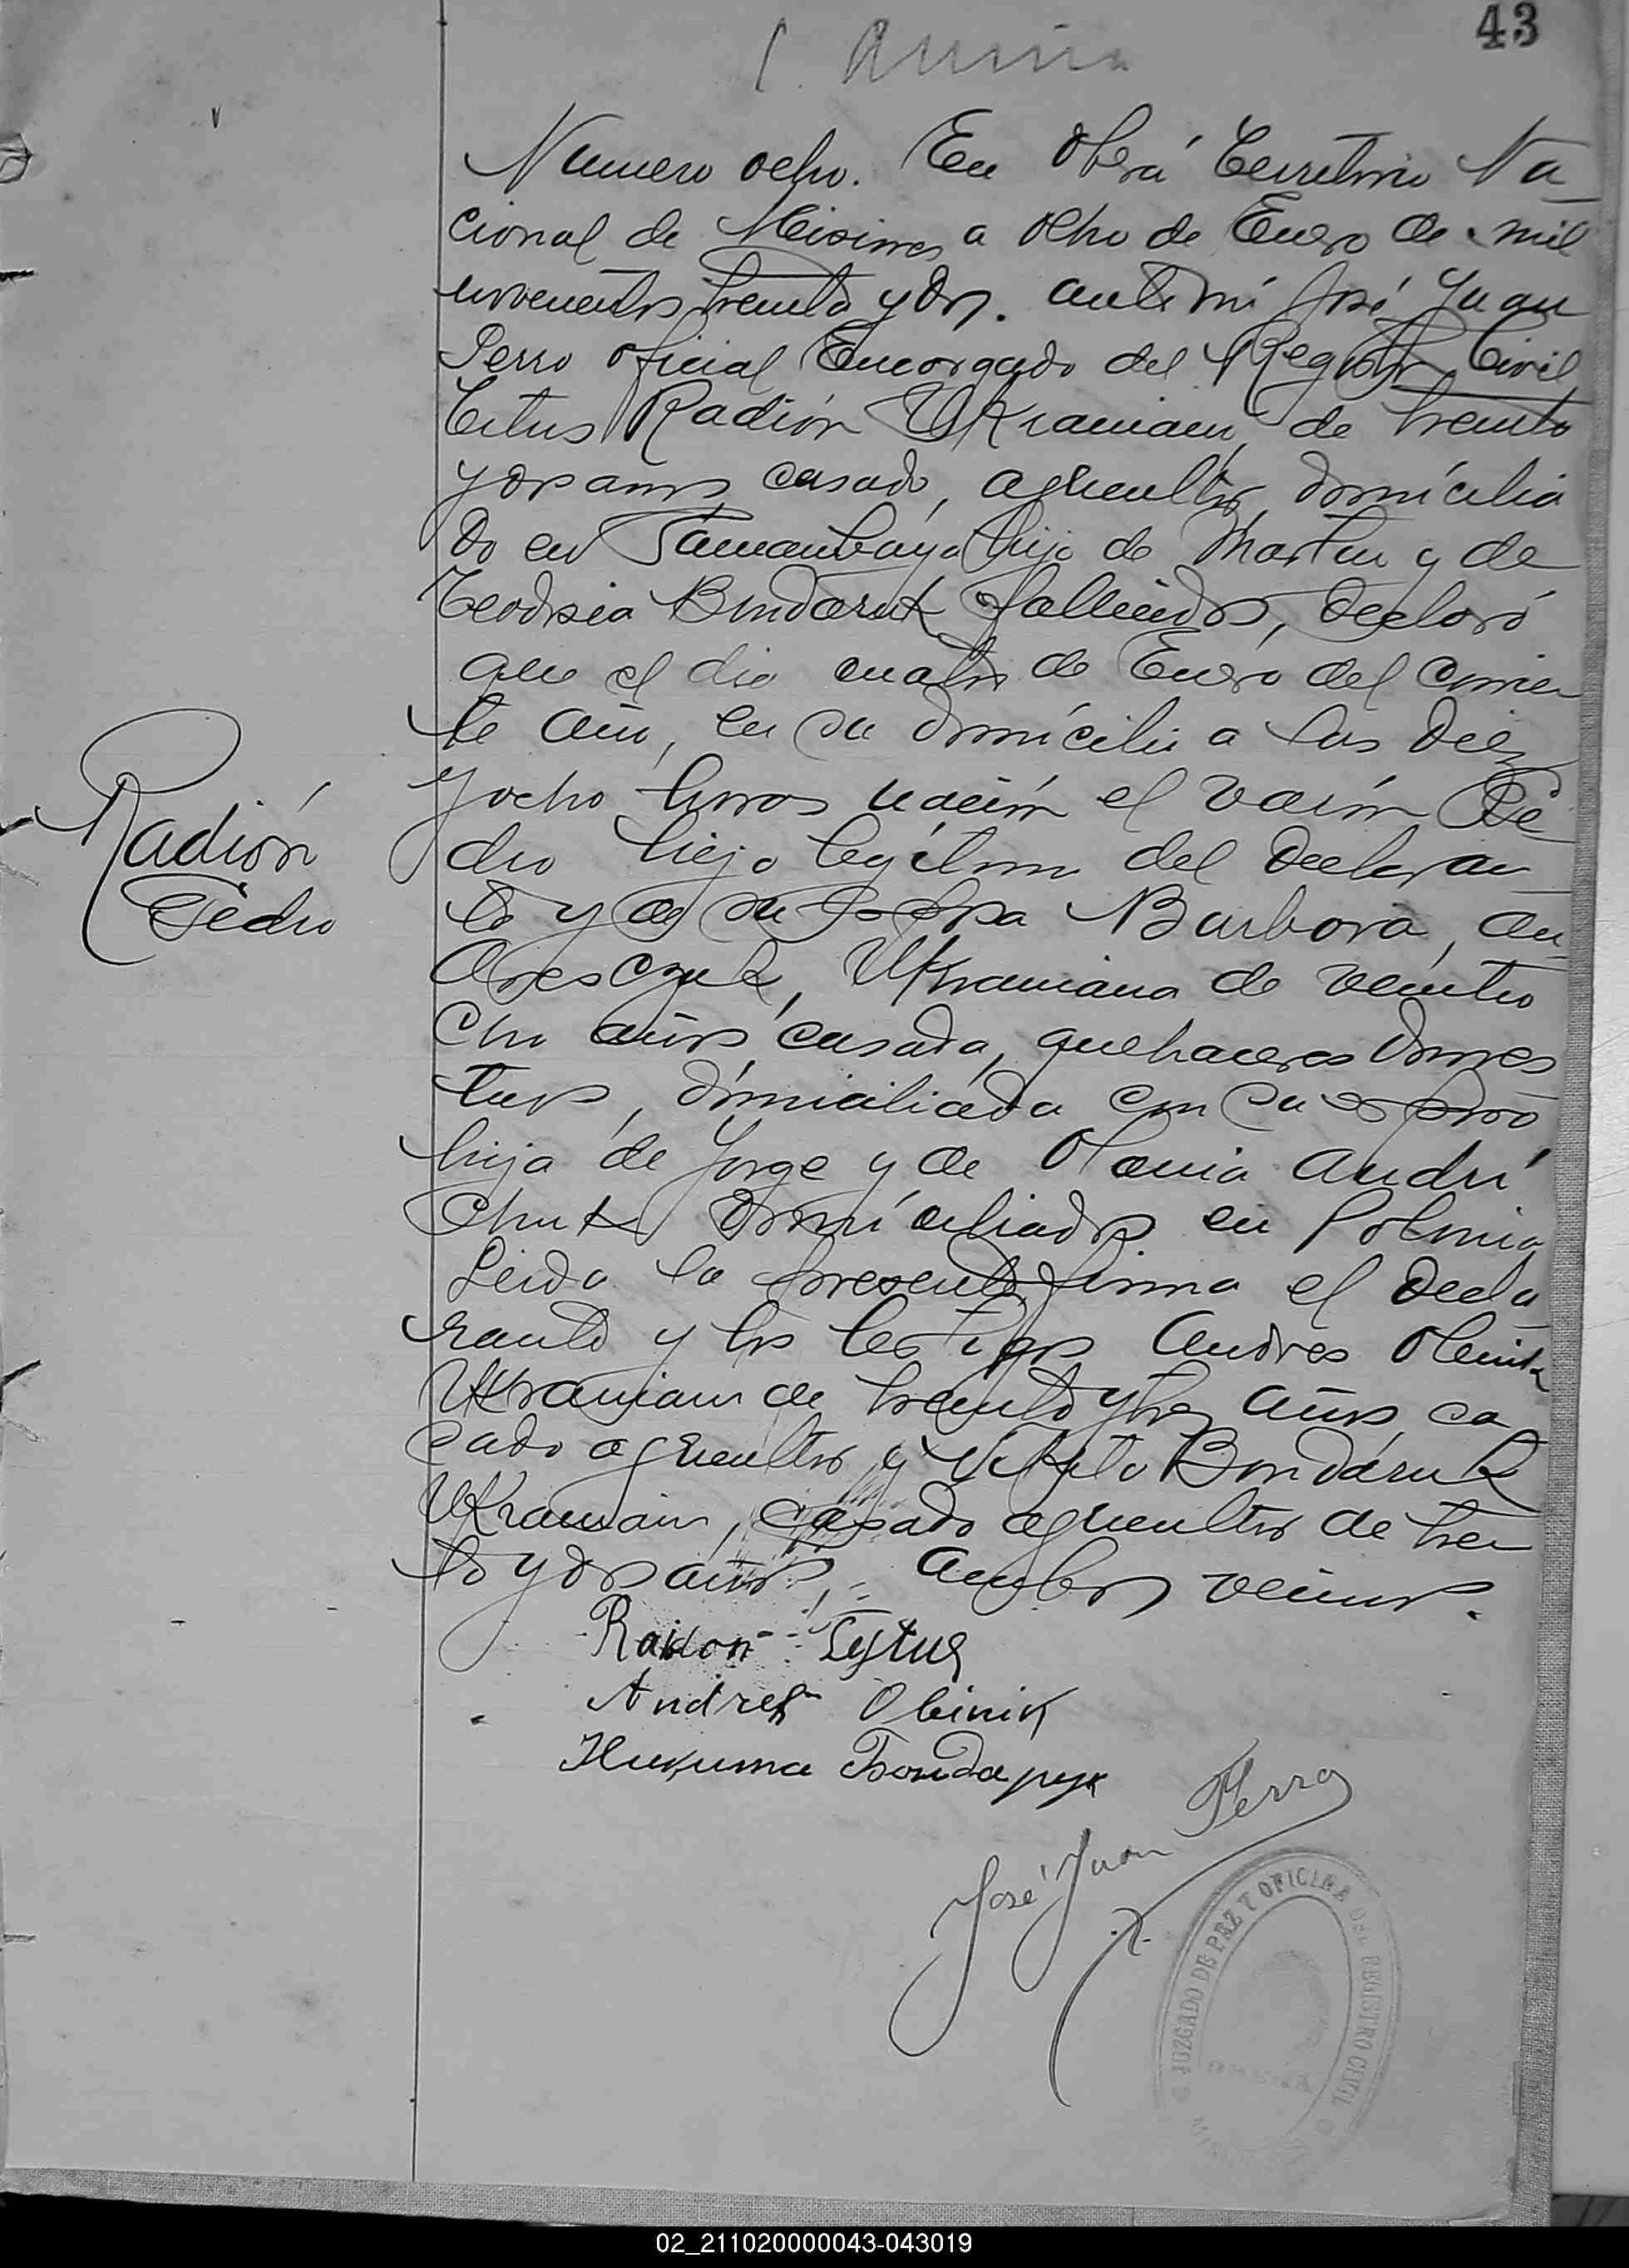 43
Numero ocho. En Oberá Territorio Na
cional de Misiones a ocho de Enero de mil
novecientos treinta y dos. ante mi José Juan
Perro oficial Encargado del Registro Civil
Titus Radión Ukraniano, de treinta
y dos años casado, agricultor, domicilia
do en Tamanduay hijo de Martin y de
Teodosia Bondaruk fallecidos, declaró
que el dia cuatro de Enero del corrien
te año, en su domicilio a las diez
y ocho horas nació el varón Pe
Radión
dro hijo legitimo del declaran
Pedro
te y de su esposa Barbora, an
dresczuk, Ukraniana de veintio
cho años casada, quehaceres domes
ticos, domiciliada con su esposo
hija de Jorge y de Olania Andri
chuk domiciliados en Polonia
Leida la presente firma el decla
rante y los testigos Andres Oleinik
Ukraniano de treinta y tres años, ca
sado agricultor y Nikita Bondáruk
Ukraniano, casado agricultor de trein
ta y dos años, ambos vecinos.
Radion Tytus
Andres Oleinik
Никита Бондарук
José Juan Perro
JUZGADO DE PAZ Y OFICINA DEL REGISTRO CIVIL
02_211020000043-043019